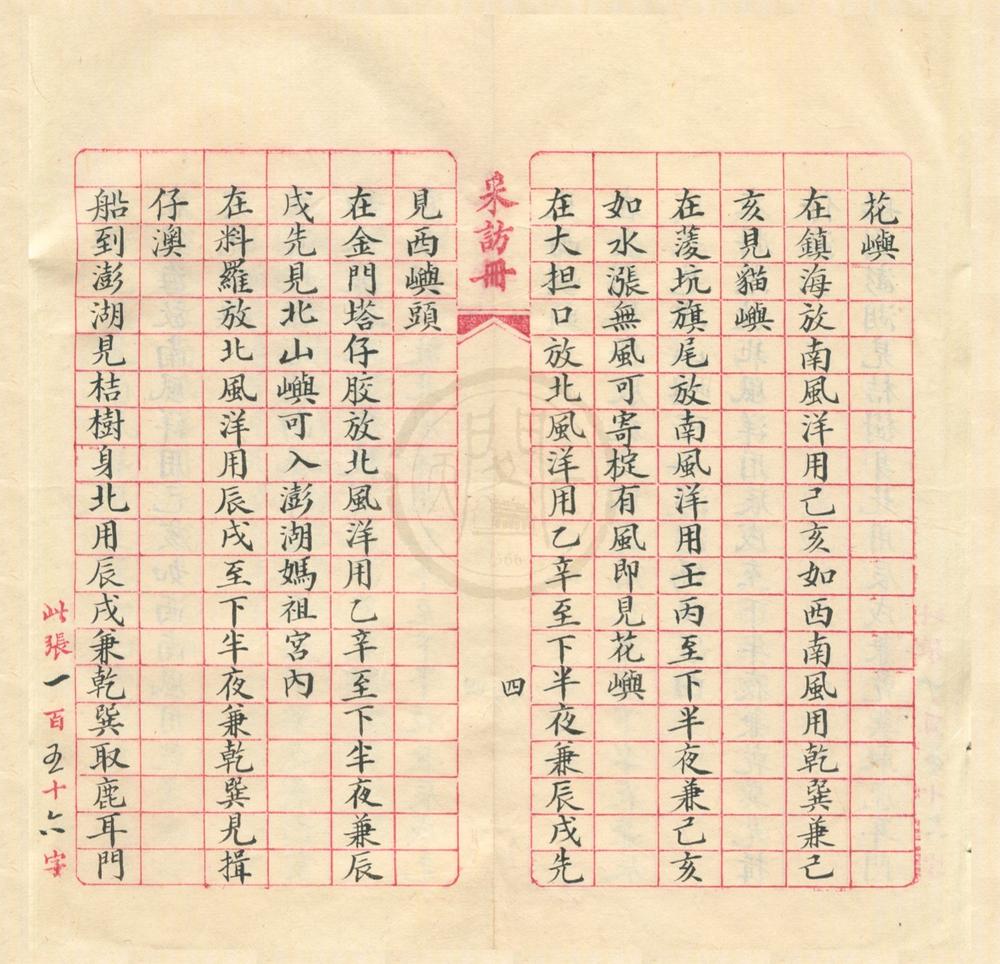 花嶼
在鎮海放南風洋用己亥如西南風用乾巽兼己
亥見貓嶼
在菱坑旗尾放南風洋用壬丙至下半夜兼己亥
如水漲無風可寄椗有風即見花嶼
在大担口放北風洋用乙辛至下半夜兼辰戌先
四
采訪冊
見西嶼頭
在金門塔仔胶放北風洋用乙辛至下半夜兼辰
戌先見北山嶼可入澎湖媽祖宮內
在料羅放北風洋用辰戌至下半夜兼乾巽見揖
仔澳
船到澎湖見桔樹身北用辰戌兼乾巽取鹿耳門
此張一百五十六字